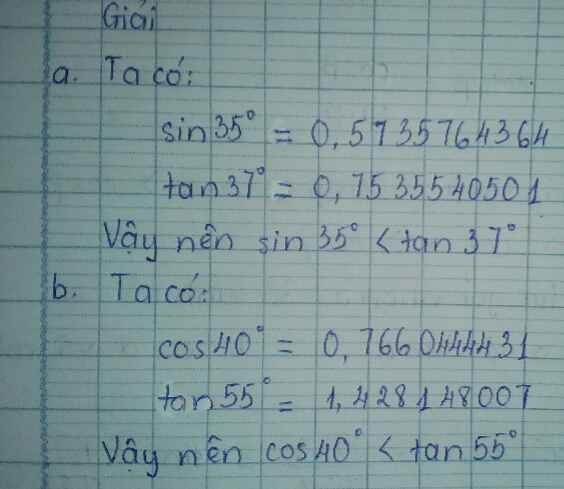 Giải
a. Ta có:
sin 35° = 0,5735764364
tan 37° = 0,7535540501
Vậy nên sin 35° < tan 37°
b. Ta có:
cos 40° = 0,7660444431
tan 55° = 1,428148007
Vậy nên cos 40° < tan 55°